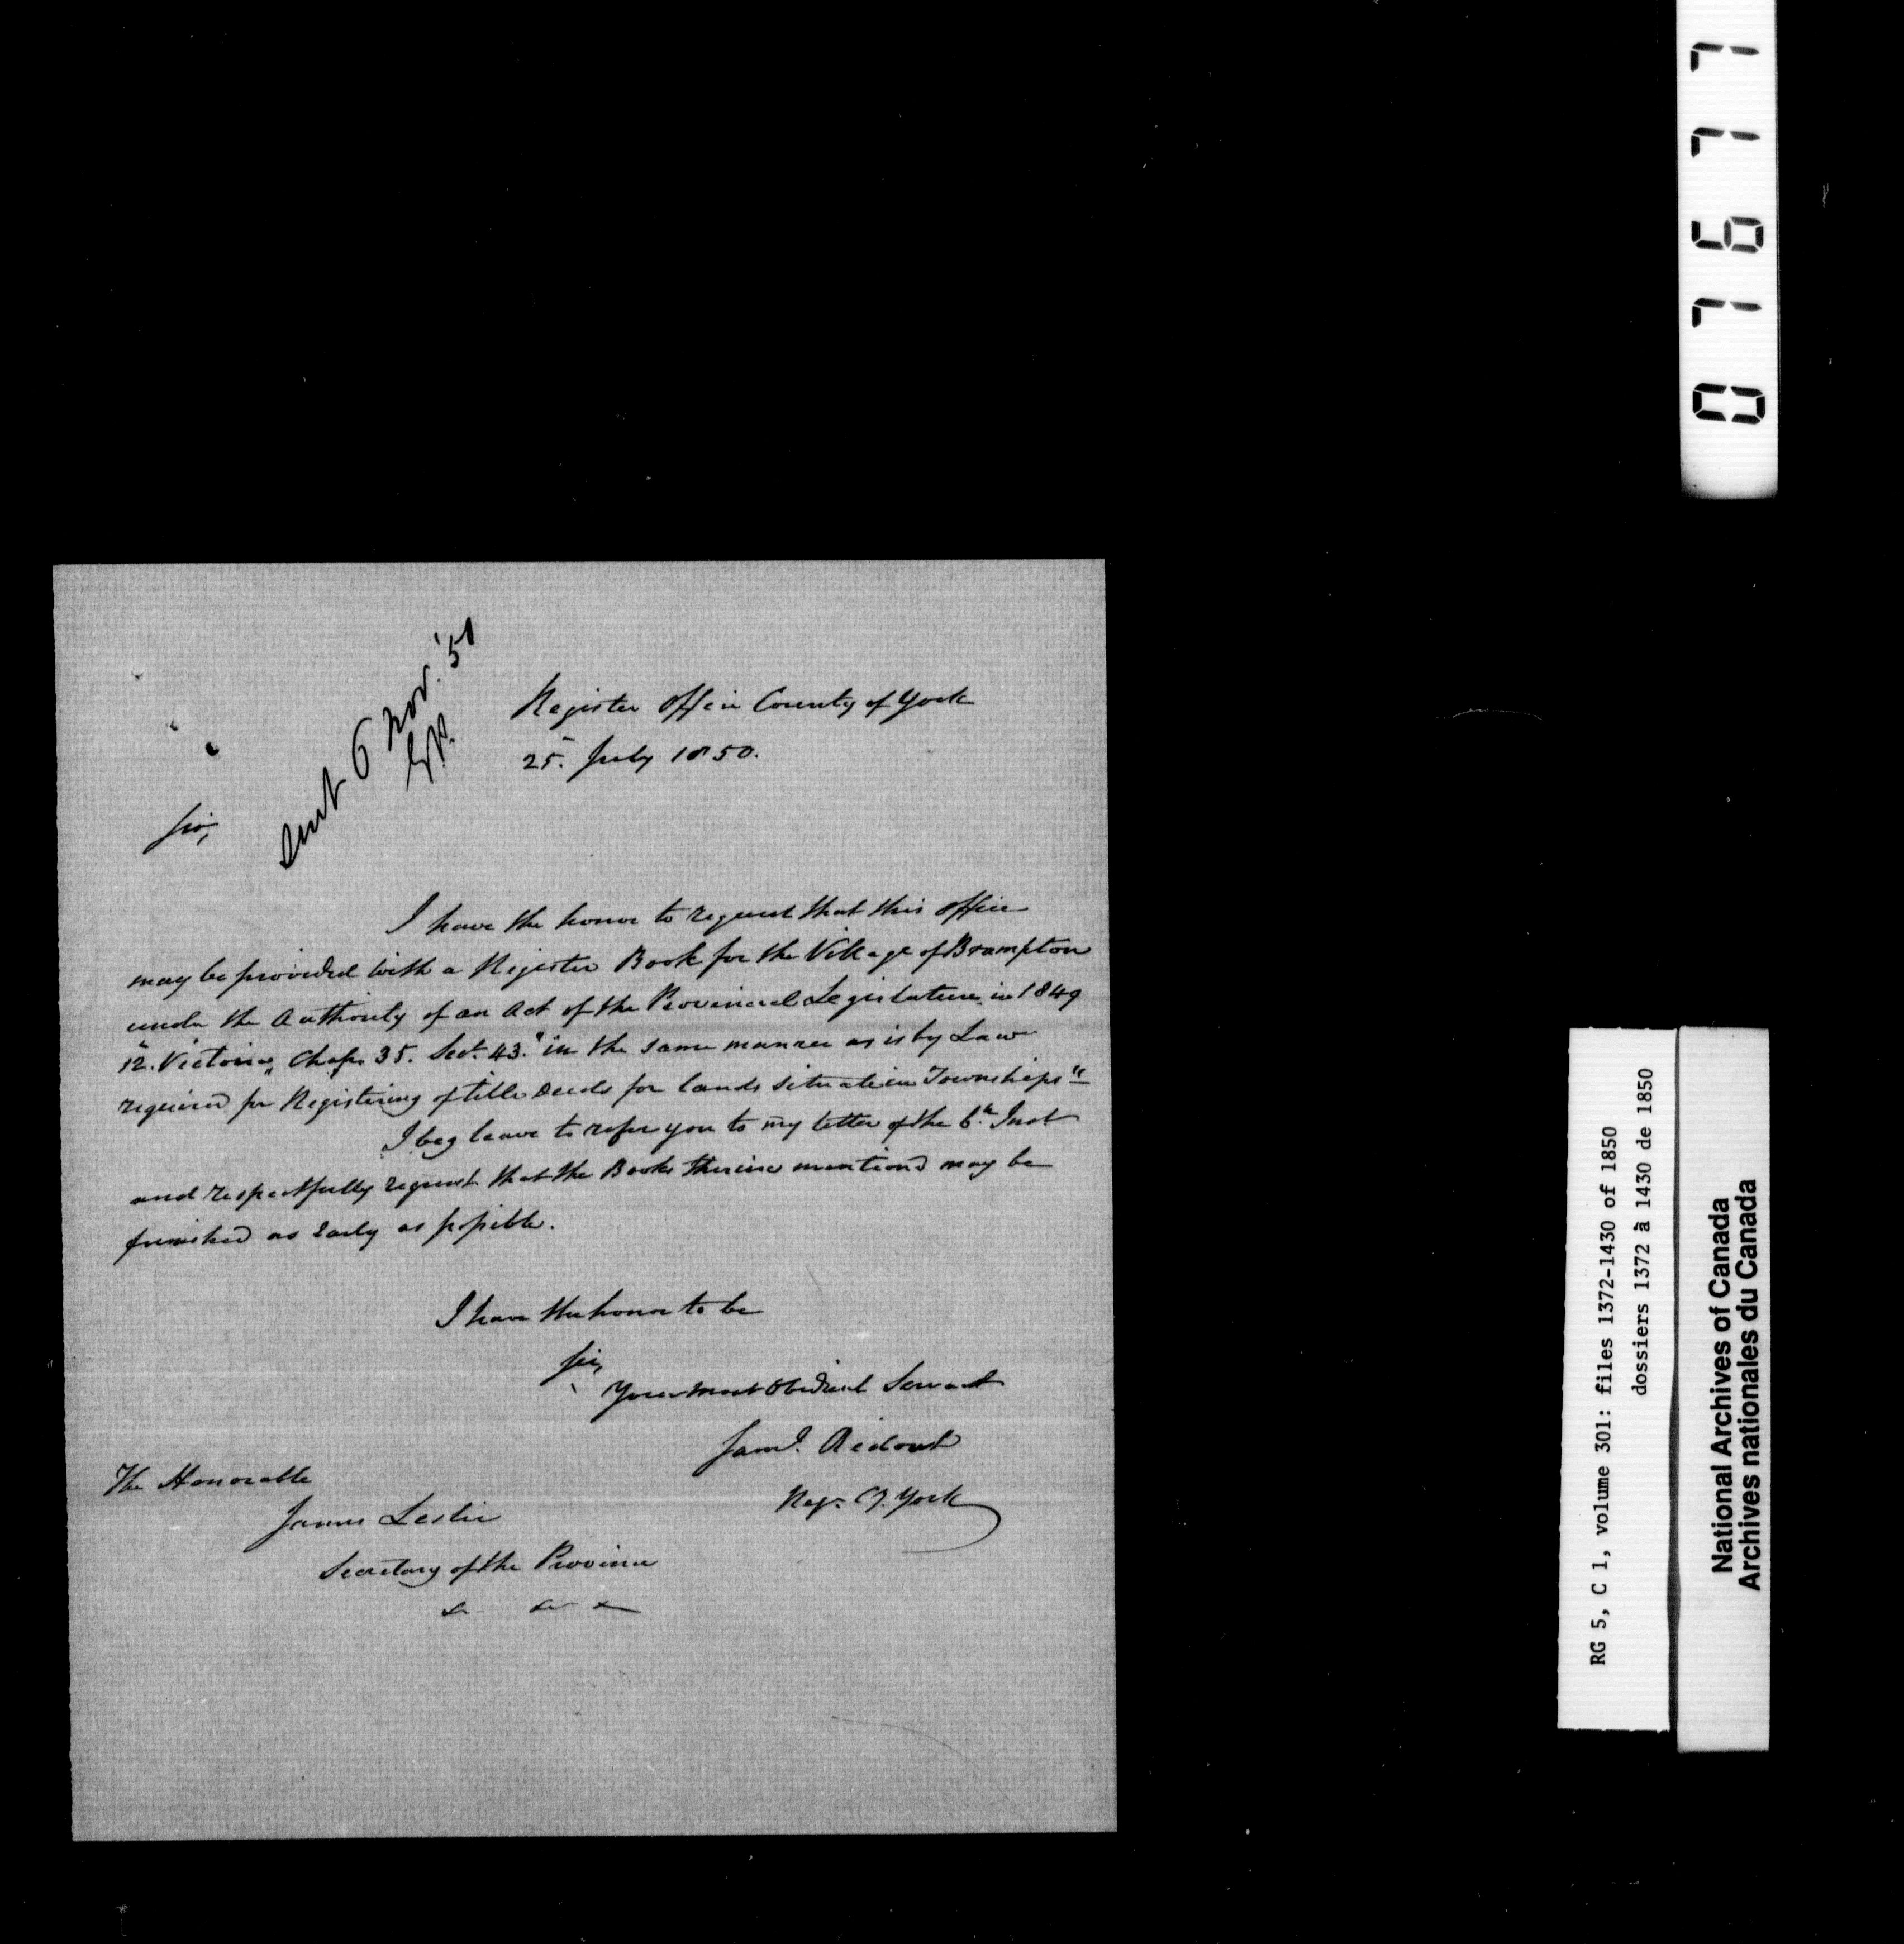 Sent 6 Nov. '50
Register Office County of York
25. July 1850.
Sir,
I have the honor to request that this office
may be provided with a Register Book for the Village of Brampton
under the Authority of an Act of the Provincial Legislature in 1849
"12. Victoria, Chap. 35. Sect. 43." in the same manner as is by Law
required for Registering of title Deeds for lands situate in Townships"
I beg leave to refer you to my letter of the 6th Inst
and respectfully request that the Books therein mentiond may be
furnished as early as possible.
I have the honor to be
Sir,
Your most Obedient Servant
Saml. Ridout
Regr. Cy. York
The Honorable
James Leslie
Secretary of the Province
&c &c &c
07677
RG 5, C 1, volume 301: files 1372-1430 of 1850
dossiers 1372 à 1430 de 1850
National Archives of Canada
Archives nationales du Canada